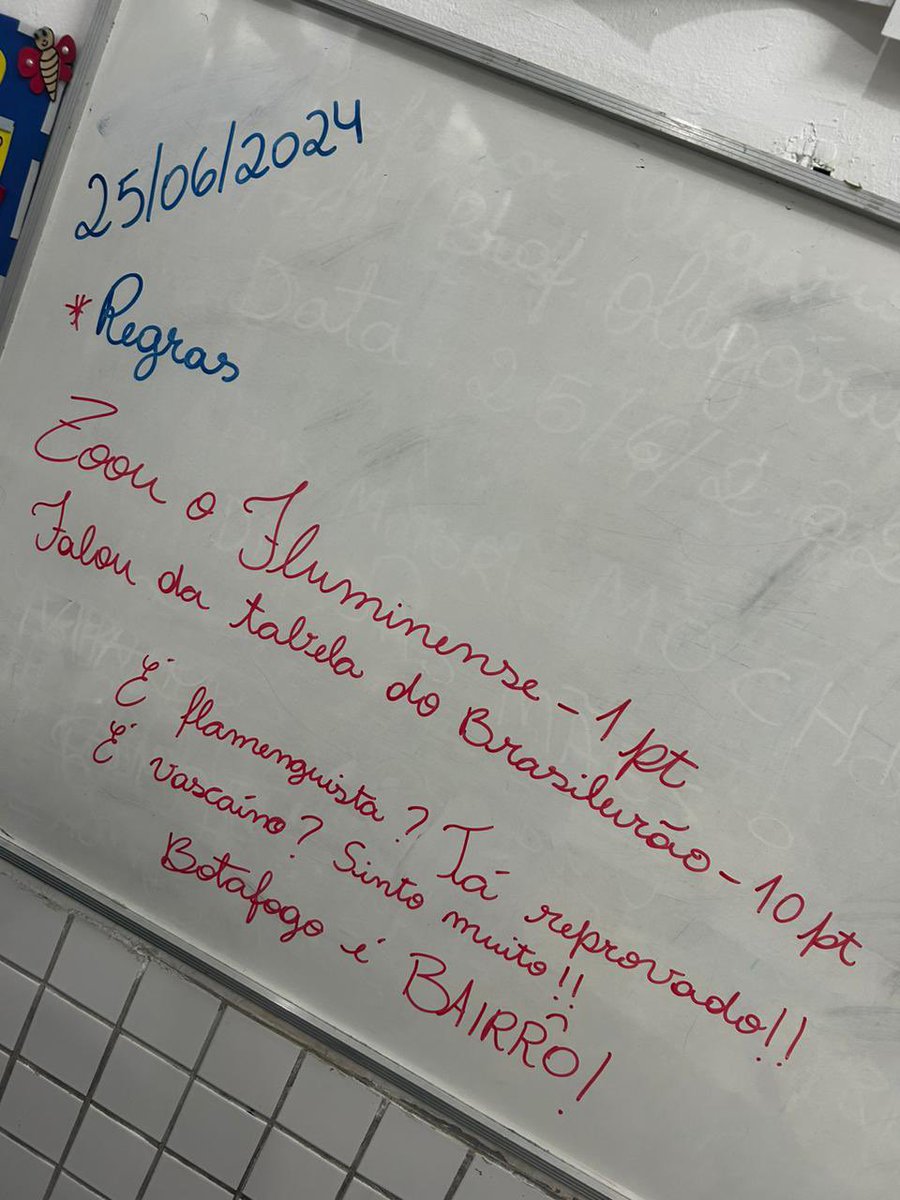 25/06/2024
*Regras
Zoou o Fluminense - 1 pt
Falou da tabela do Brasileirão - 10 pt
É flamenguista? Tá reprovado!!
É vascaíno? Sinto muito!!
Botafogo é BAIRRÔ!
Prof Olegário
Data 25/6/202